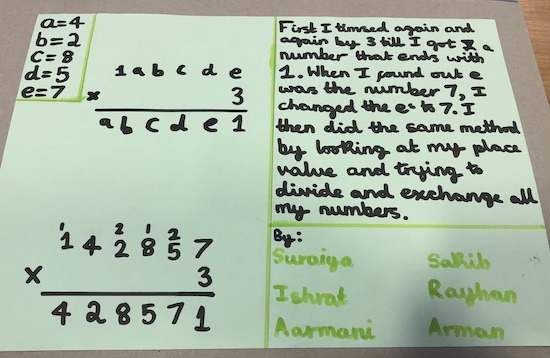 a=4
b=2
c=8
d=5
e=7
1 a b c d e
x 3
a b c d e 1
1 2 1 2
1 4 2 8 5 7
x 3
4 2 8 5 7 1
First I timsed again and
again by 3 till I got a
number that ends with
1. When I found out e
was the number 7, I
changed the e to 7. I
then did the same method
by looking at my place
value and trying to
divide and exchange all
my numbers.
By:
Suraiya Sakib
Ishrat Rayhan
Aarmani Arman